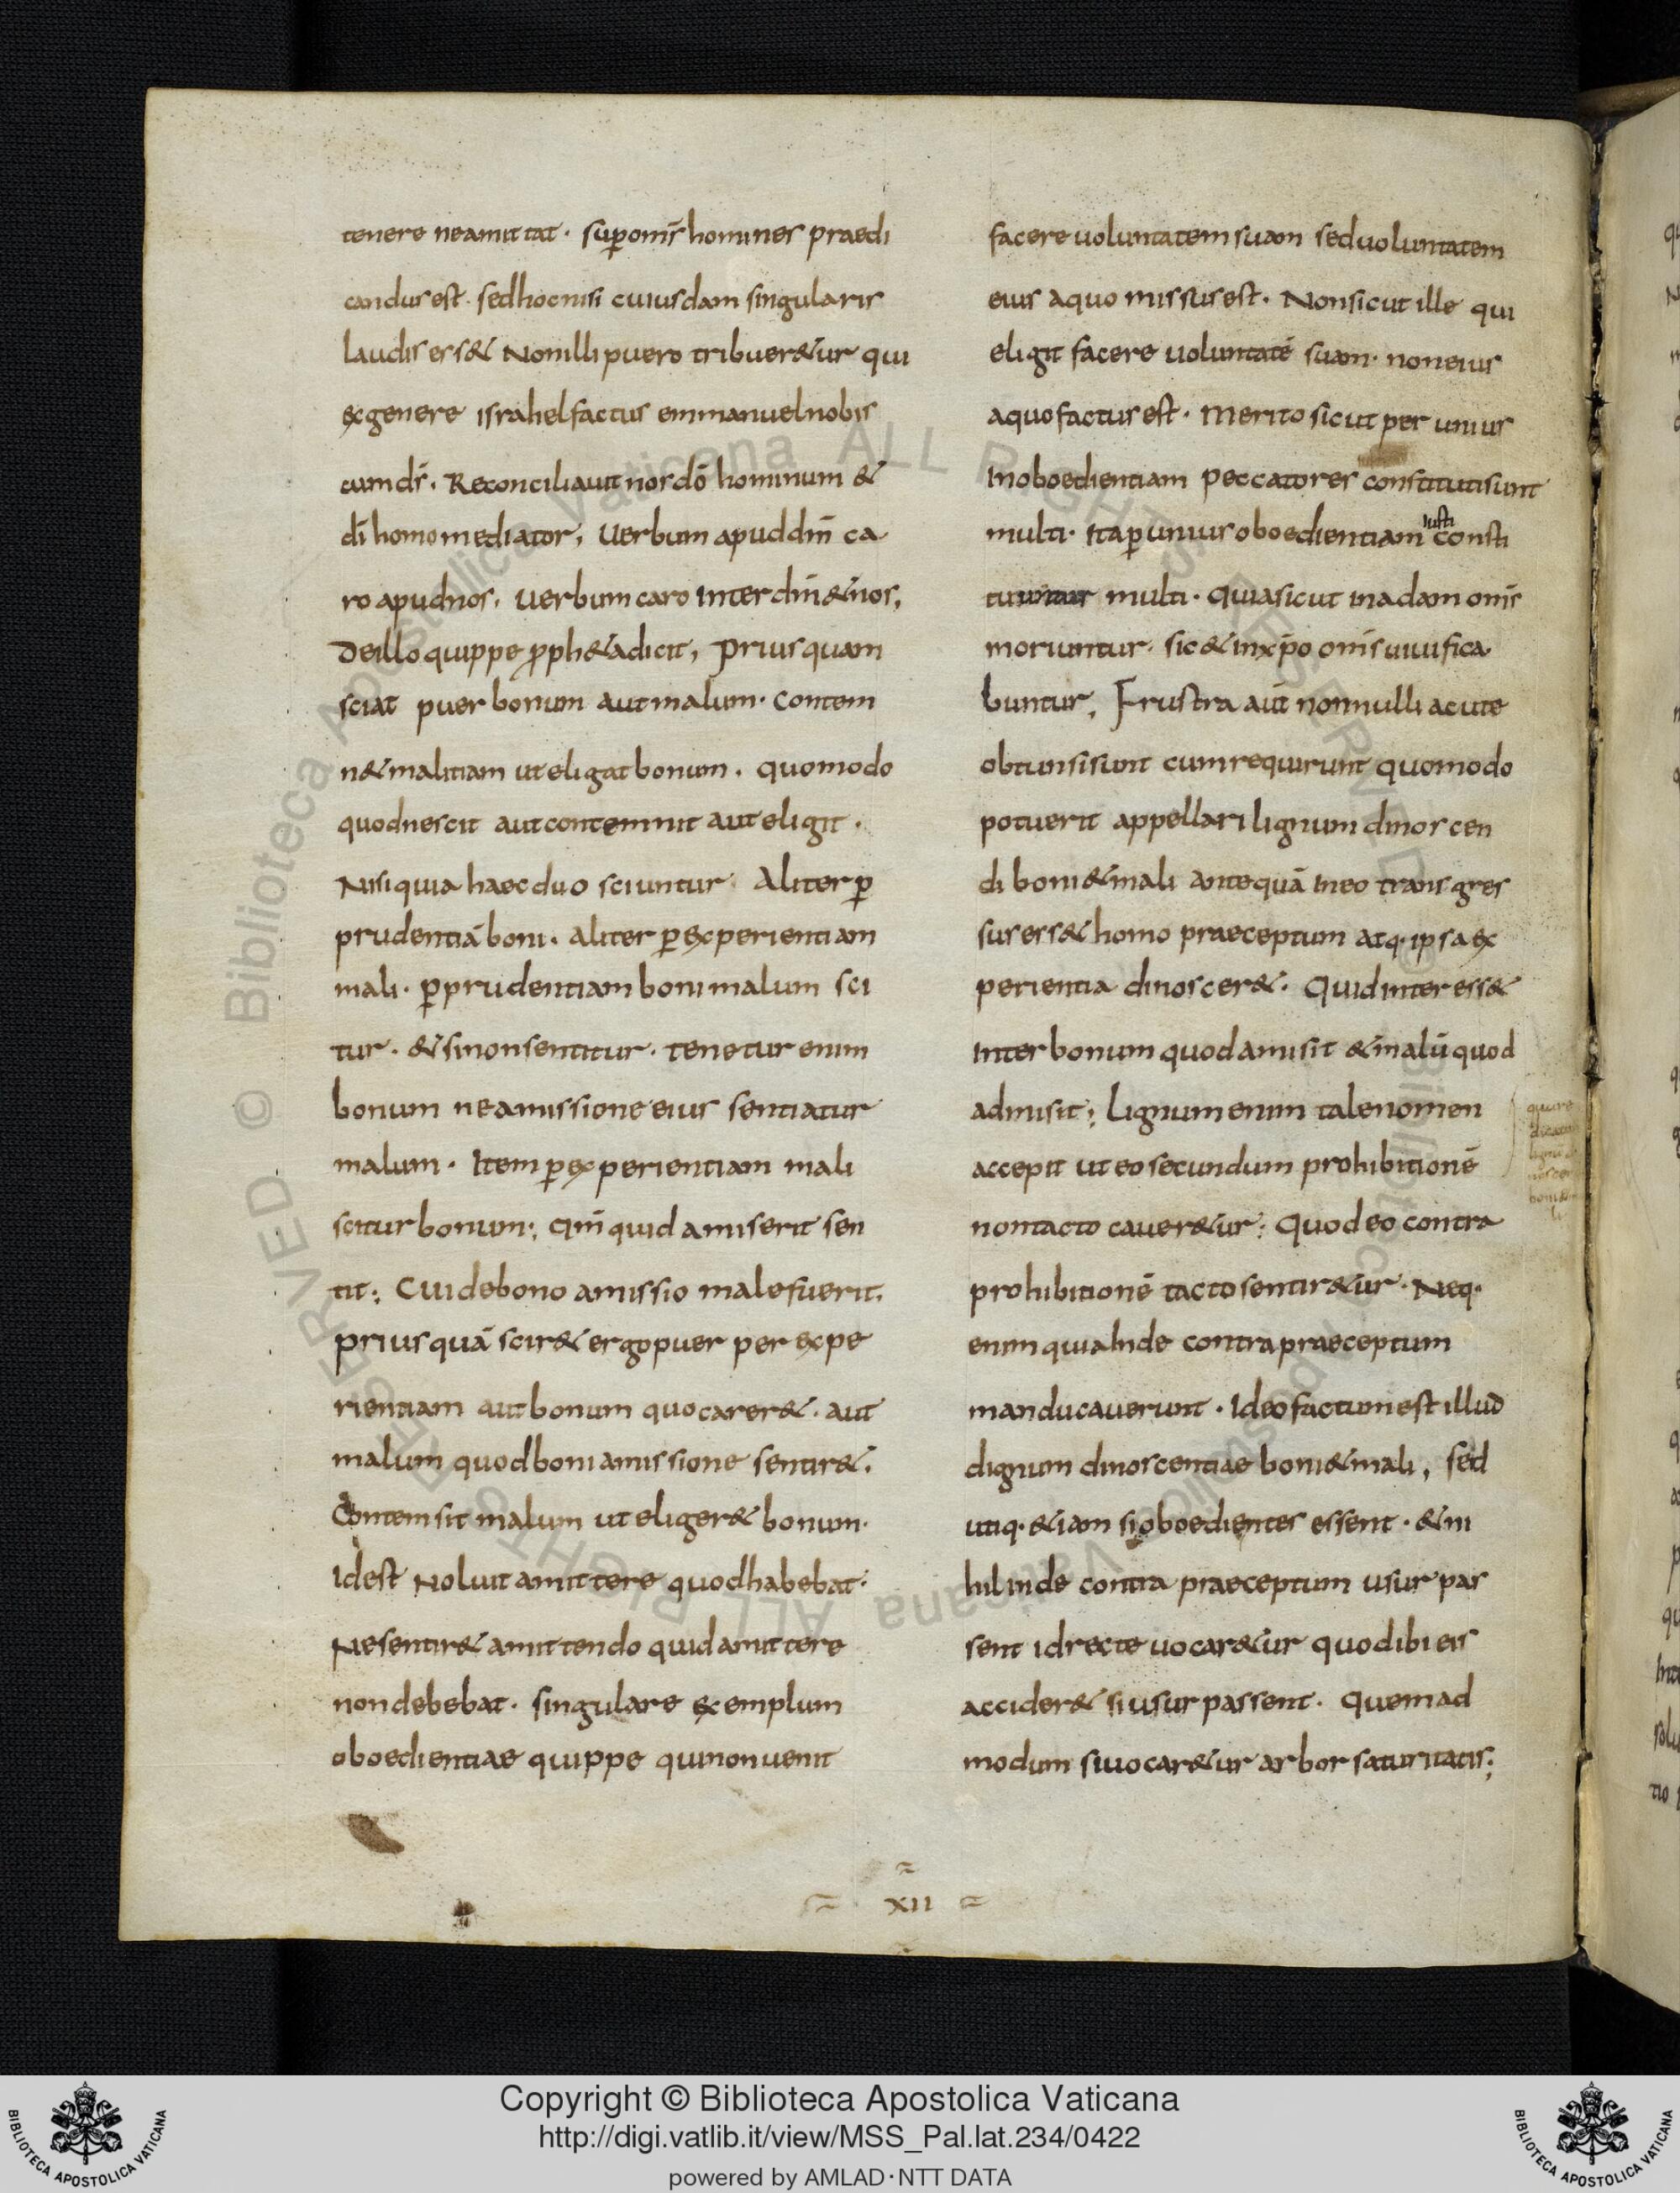 tenere neamittat · sup̄ omīs homines praedi
candus est · sed hoc nisi cuiusdam singularis
laudis ess& Non illi puero tribuer&ur qui
ex genere israhel factus emmanuel nobis
cum ds̄ · Reconciliauit nos dō hominum &
dī homo mediator, Uerbum apud dm̄ ca
ro apud nos, uerbum caro inter dm̄ & nos,
De illo quippe p̄ph&a dicit, Prius quam
sciat puer bonum aut malum · contem
n& malitiam ut eligat bonum · quomodo
quod nescit aut contemnit aut eligit ·
Nisi quia haec duo sciuntur · Aliter p̄
prudentiā boni · aliter p̄ experientiam
mali · p̄ prudentiam boni malum sci
tur · & si non sentitur · tenetur enim
bonum ne amissione eius sentiatur
malum · Item p̄ experientiam mali
scitur bonum; qm̄ quid amiserit sen
tit; Cui de bono amissio male fuerit.
prius quā scir& ergo puer per expe
rientiam aut bonum quo carer& · aut
malum quod boni amissione sentir& ·
Contemsit malum ut eliger& bonum ·
idest Noluit amittere quod habebat ·
Ne sentir& amittendo quid amittere
non debebat · singulare exemplum
oboedientiae quippe qui non uenit
facere uoluntatem suam sed uoluntatem
eius a quo missus est · Non sicut ille qui
eligit facere uoluntatē suam · non eius
a quo factus est · Merito sicut per unius
inoboedientiam peccatores constituti sunt
multi · Ita p̄ unius oboedientiam iusti consti
tuuntur multi · Quia sicut in adam omīs
moriuntur · sic & in xp̄o omīs uiuifica
buntur, Frustra aut̄ nonnulli acute
obtunsi sunt cum requirunt quomodo
potuerit appellari lignum dinoscen
di boni & mali antequā in eo transgres
sus ess& homo praeceptum atq· ipsa ex
perientia dinoscer& · Quid interess&
inter bonum quod amisit & malū quod
admisit; Lignum enim tale nomen
accepit ut eo secundum prohibitionē
non tacto cauer&ur; Quod eo contra
prohibitionē tacto sentir&ur · Neq·
enim quia inde contra praeceptum
manducauerunt · Ideo factum est illud
dignum dinoscentiae boni & mali, sed
utiq· &iam si oboedientes essent · & ni
hil inde contra praeceptum usurpas
sent id recte uocar&ur quod ibi eis
accider& si usurpassent · Quemad
modum si uocar&ur arbor saturitatis;
XII
Copyright © Biblioteca Apostolica Vaticana
http://digi.vatlib.it/view/MSS_Pal.lat.234/0422
powered by AMLAD · NTT DATA
BIBLIOTECA APOSTOLICA VATICANA
BIBLIOTECA APOSTOLICA VATICANA